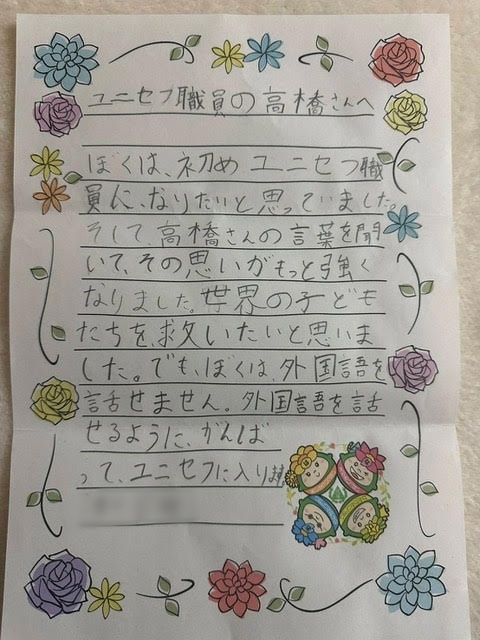 ユニセフ職員の高橋さんへ
ぼくは、初めユニセフ職
員に、なりたいと思っていました。
そして、高橋さんの言葉を聞
いて、その思いがもっと強く
なりました。世界の子ども
たちを、救いたいと思いま
した。でも、ぼくは、外国語を
話せません。外国語を話
せるように、がんば
って、ユニセフに入ります。